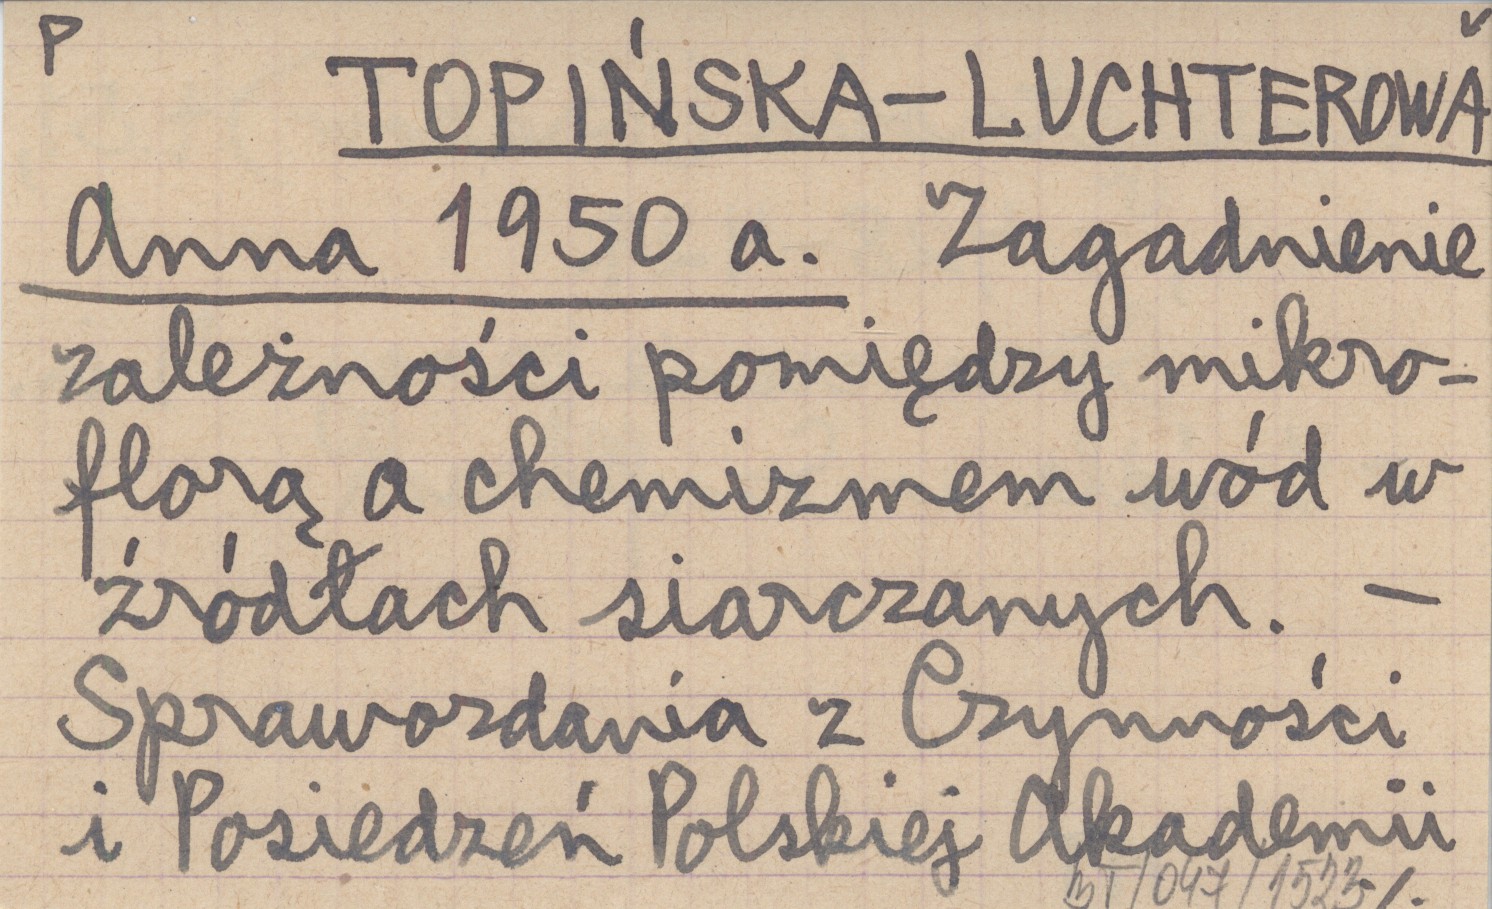 P
TOPIŃSKA-LUCHTEROWA
Anna 1950 a. Zagadnienie
zależności pomiędzy mikro-
florą a chemizmem wód w
źródłach siarczanych. —
Sprawozdania z Czynności
i Posiedzeń Polskiej Akademii
BT/047/1523 /.